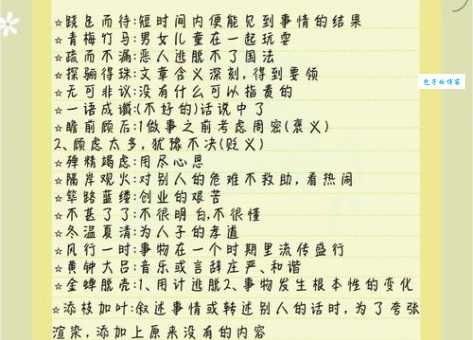 ☆跬足而待:短时间内便能见到事情的结果
☆青梅竹马:男女儿童在一起玩耍
☆疏而不漏:恶人逃脱不了国法
☆探骊得珠:文章含义深刻,得到要领
☆无可非议:没有什么可以指责的
☆一语成谶:(不好的)话说中了
☆瞻前顾后:1做事之前考虑周密(褒义)
2、顾虑太多,犹豫不决(贬义)
☆殚精竭虑:用尽心思
☆隔岸观火:对别人的危难不救助,看热闹
☆筚路蓝缕:创业的艰苦
☆不甚了了:不很明白,不很懂
☆冬温夏清:为人子的孝道
☆风行一时:事物在一个时期里流传盛行
☆黄钟大吕:音乐或言辞庄严、和谐
☆金蝉脱壳:1、用计逃脱2、事物发生根本性的变化
☆添枝加叶:叙述事情或转述别人的话时,为了夸张
渲染,添加上原来没有的内容